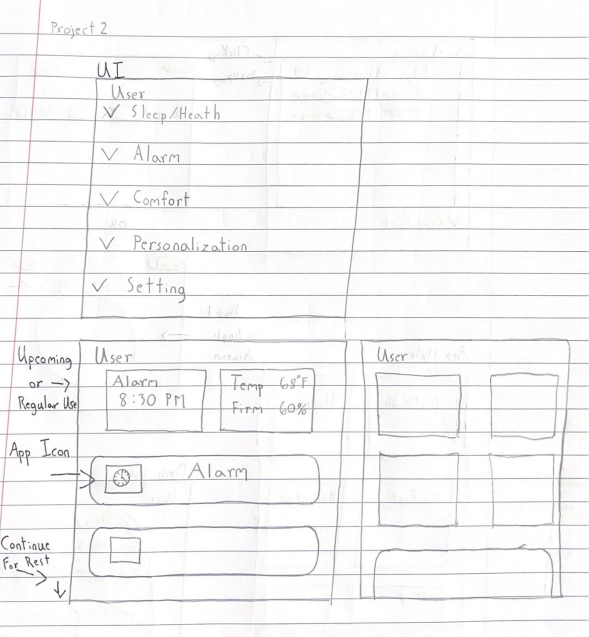 Project 2
UI
User
Sleep/Heath
Alarm
Comfort
Personalization
Setting
Upcoming
or →
Regular Use
User
Alarm
8:30 PM
Temp 68°F
Firm 60%
User
App Icon
Alarm
Continue
For Rest